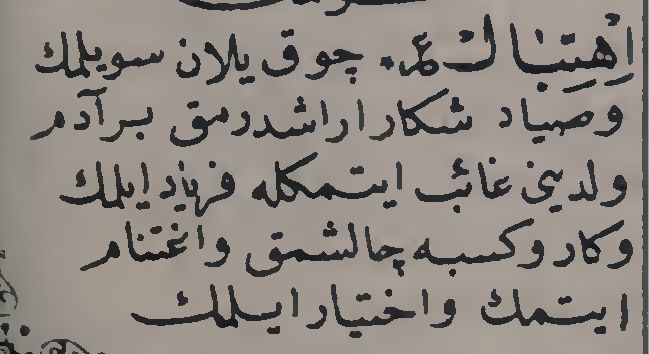 اِهْتِبَالْ ع. چوق يلان سويلمك
وصياد شكار اراشدرمق برآدم
ولدينى غائب ايتمكله فرياد ايلمك
وكار وكسبه چالشمق واغتنام
ايتمك واختيار ايلمك